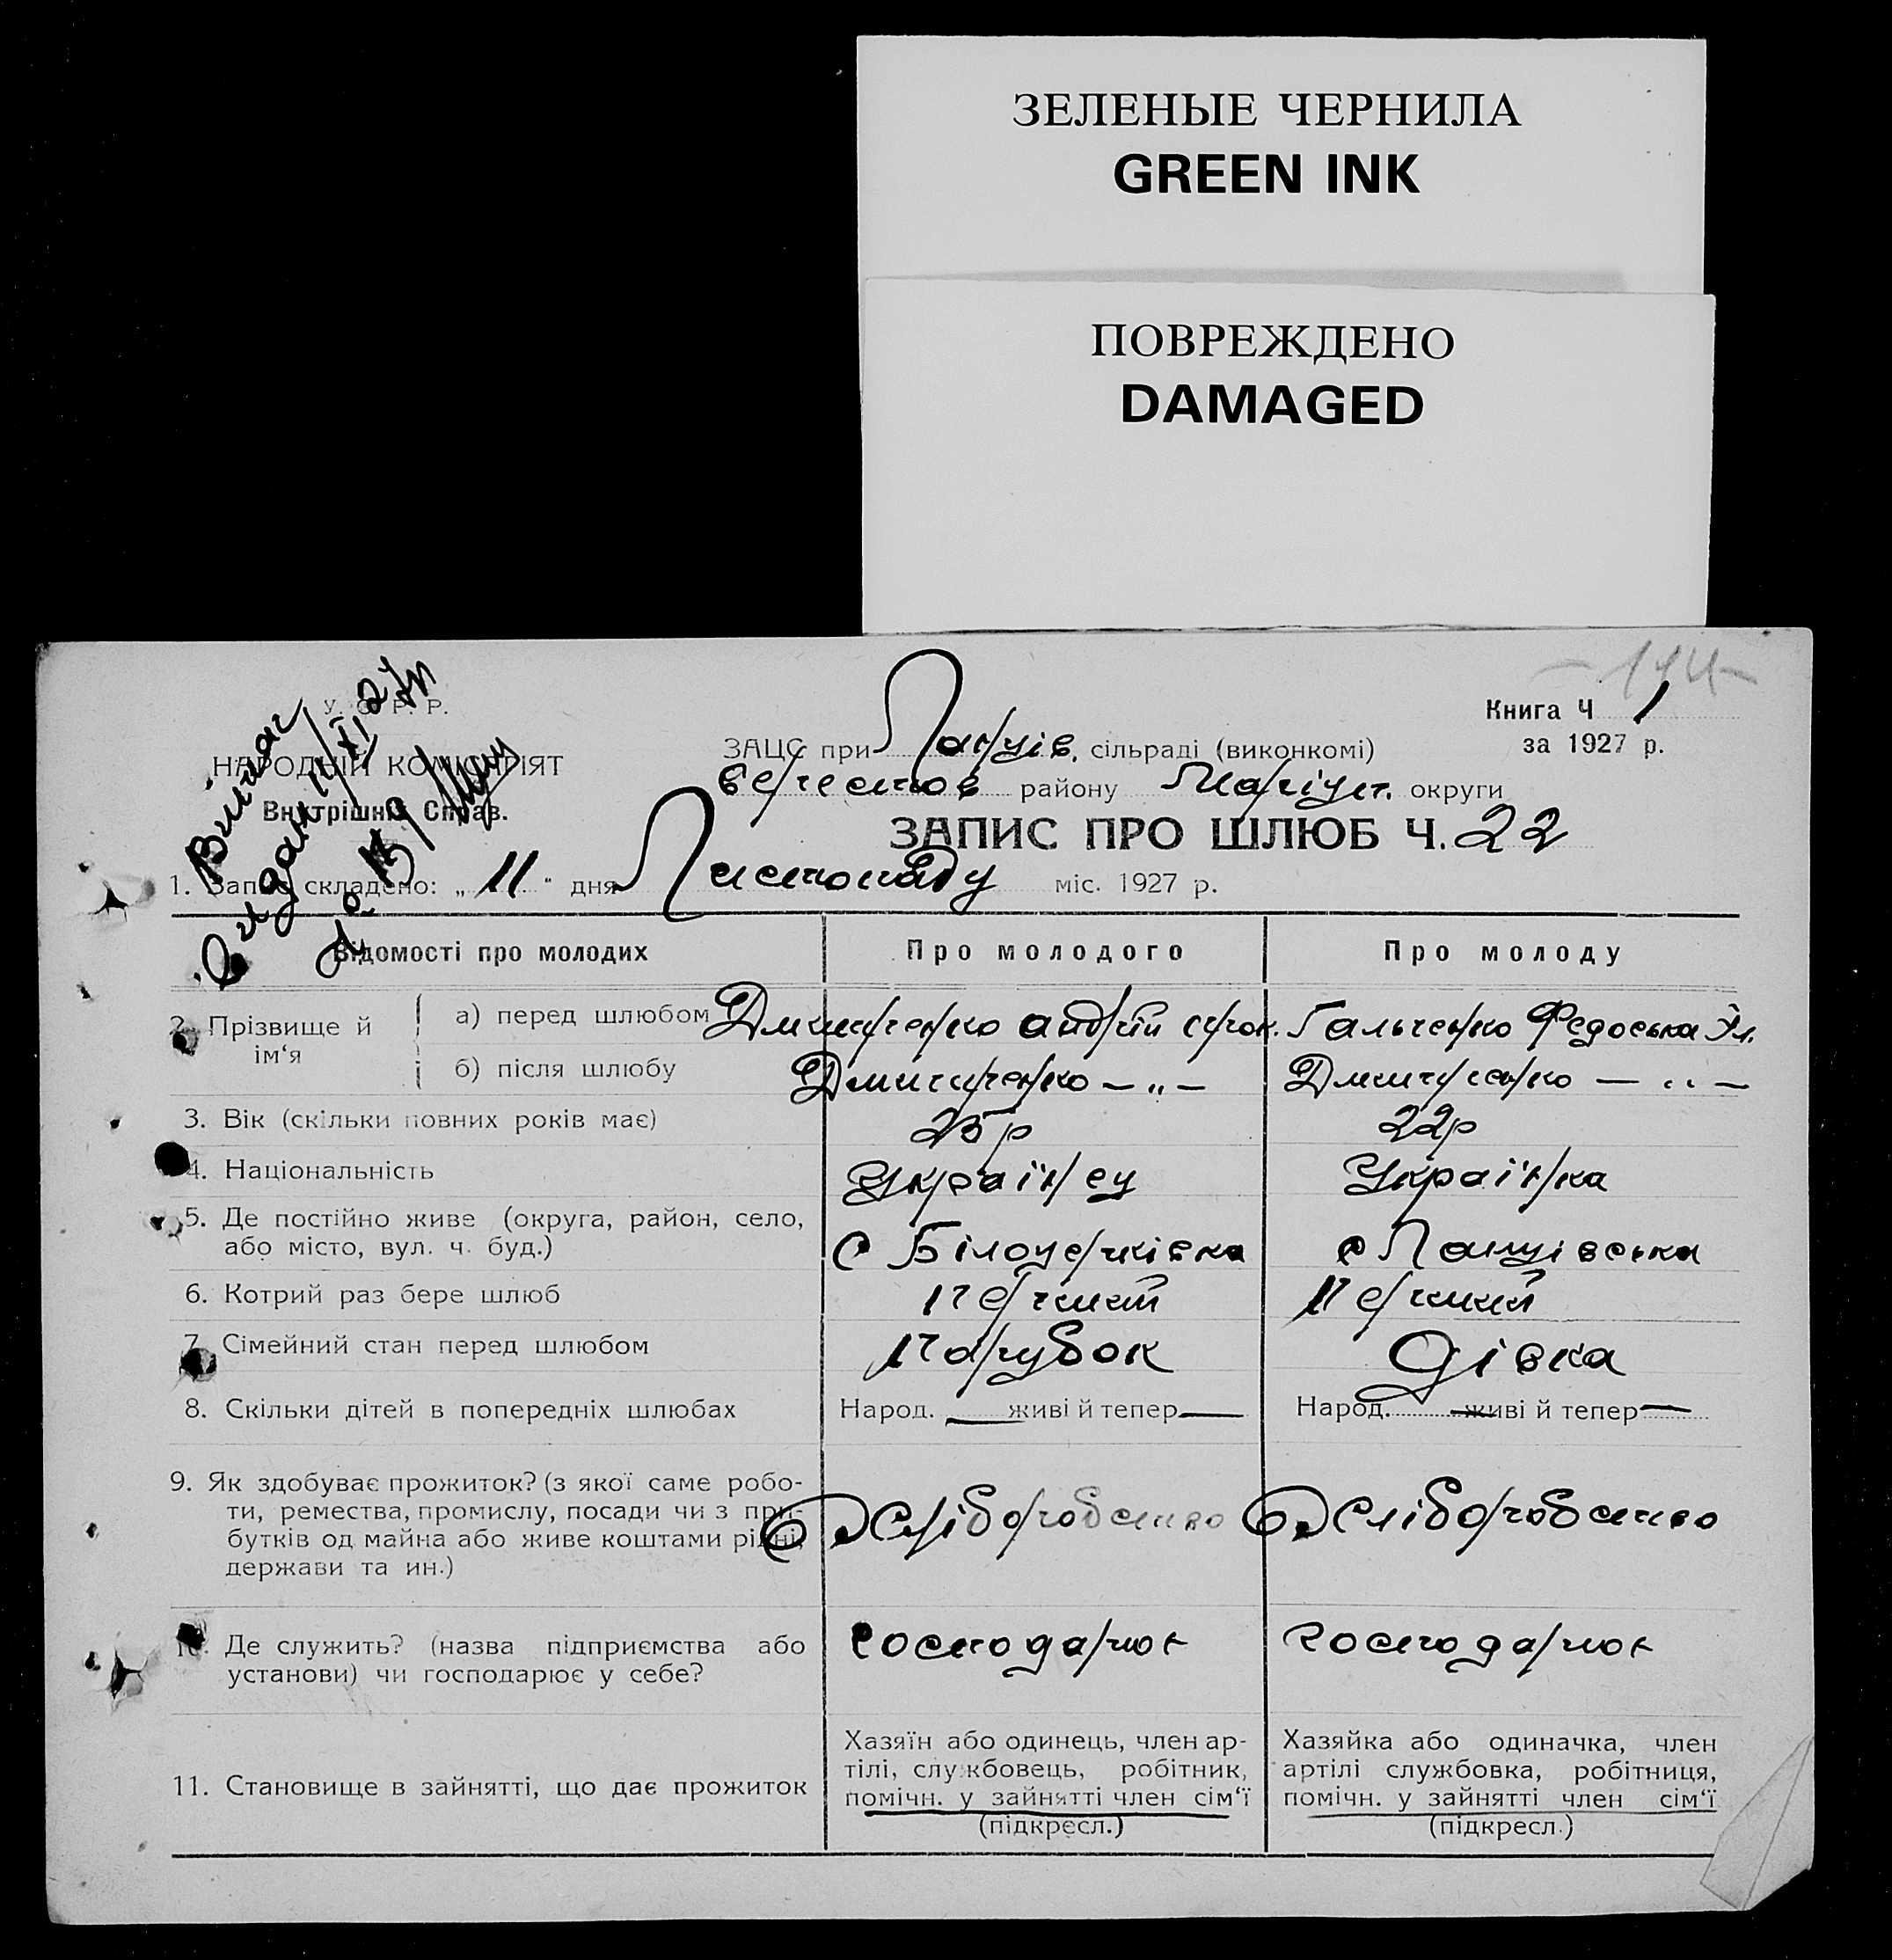 ЗЕЛЕНЫЕ ЧЕРНИЛА
GREEN INK
ПОВРЕЖДЕНО
DAMAGED
У. С. Р. Р.
НАРОДНІЙ КОМІСАРІЯТ
Внутрішніх Справ.
Книга Ч 1
за 1927 р.
ЗАЦС при сільраді (виконкомі)
району Маріуп. округи
ЗАПИС ПРО ШЛЮБ Ч. 22
1. Запис складено: „ 11 " дня Листопаду міс. 1927 р.
Відомості про молодих
Про молодого
Про молоду
2. Прізвище й ім‘я
а) перед шлюбом
Дмитренко Андрій
Гальченко Федоська
б) після шлюбу
Дмитренко — „ —
Дмитренко — „ —
3. Вік (скільки повних років має)
25 р
22 р
4. Національність
Українец
Українка
5. Де постійно живе (округа, район, село,
або місто, вул. ч. буд.)
с Білоцерківка
с
6. Котрий раз бере шлюб
первий
первий
7. Сімейний стан перед шлюбом
парубок
дівка
8. Скільки дітей в попередніх шлюбах
Народ. — живі й тепер —
Народ. — живі й тепер —
9. Як здобуває прожиток? (з якої саме робо-
ти, ремества, промислу, посади чи з при-
бутків од майна або живе коштами рідні,
держави та ин.)
хліборобство
хліборобство
10. Де служить? (назва підприємства або
установи) чи господарює у себе?
господарює
господарює
11. Становище в зайнятті, що дає прожиток
Хазяїн або одинець, член ар-
тілі, службовець, робітник,
помічн. у зайнятті член сім‘ї
(підкресл.)
Хазяйка або одиначка, член
артілі службовка, робітниця,
помічн. у зайнятті член сім‘ї
(підкресл.)